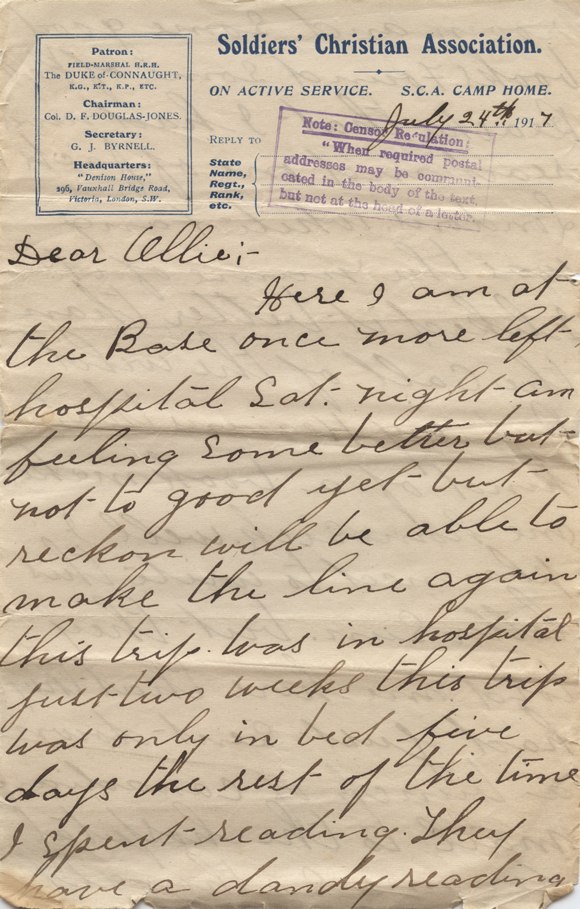 Patron:
FIELD-MARSHAL H.R.H.
The DUKE of CONNAUGHT,
K.G., K.T., K.P., ETC.
Chairman:
Col. D. F. DOUGLAS-JONES.
Secretary:
G. J. BYRNELL.
Headquarters:
"Denison House,"
296, Vauxhall Bridge Road,
Victoria, London, S.W.
Soldiers' Christian Association.
ON ACTIVE SERVICE. S.C.A. CAMP HOME.
July 24th 1917
REPLY TO
State
Name,
Regt.,
Rank,
etc.
Note: Censor Regulation:
"When required postal
addresses may be communi-
cated in the body of the text,
but not at the head of a letter.
Dear Ollie;-
Here I am at
the Base once more left
hospital Sat. night am
feeling some better but
not to good yet but
reckon will be able to
make the line again
this trip. was in hospital
just two weeks this trip
was only in bed five
days the rest of the time
I spent reading. They
have a dandy reading